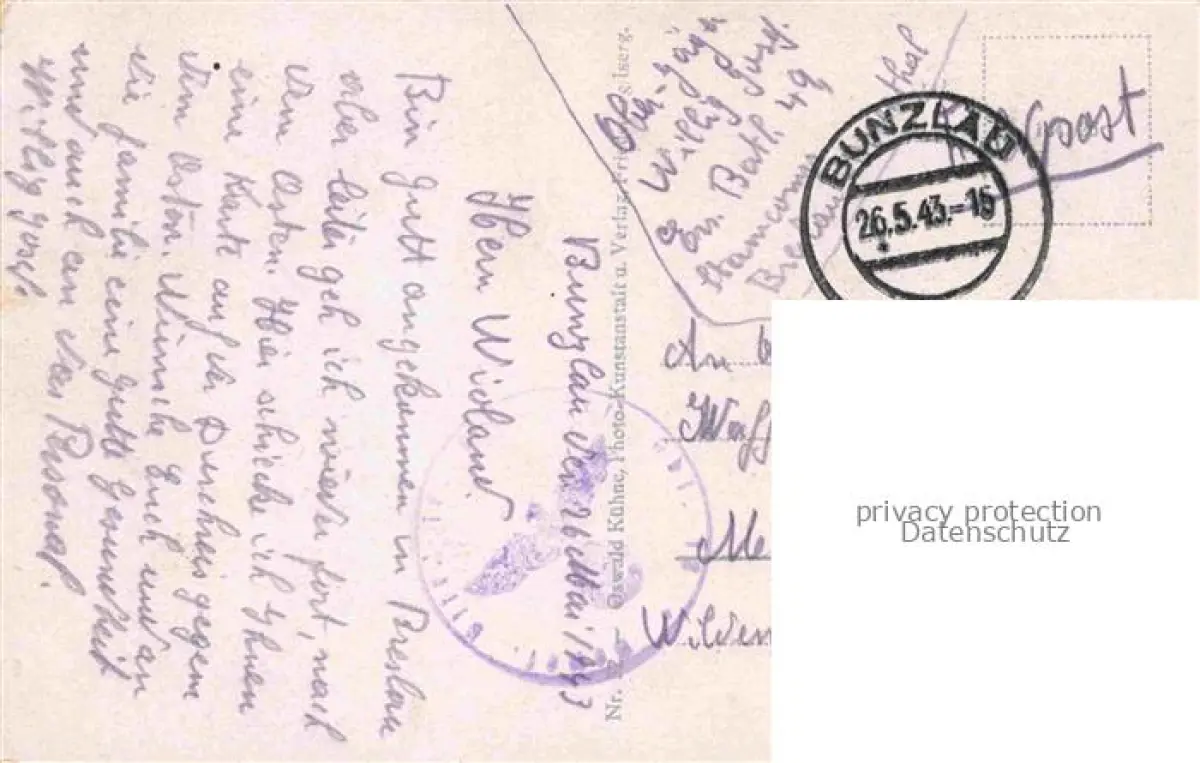 Bunzlau den 26 Mai 1943
Herrn Wieland.
Bin gutt angekommen in Breslau
aber leider geh ich wieder fort, nach
dem Osten. Hier schicke ich Ihnen
eine Karte auf der Durchreis gegem
dem Osten. Wünsche Euch und an
die Familie eine gutte Gesundheit
und auch an das Personal.
Willig Josef.
Ober-Jäger
Willig Josef.
Ers. Batl. 49
Stamcomp
Breslau
Feldpost
BUNZLAU
26.5.43.-16
An
Me
Wilden
Nr. Oswald Kühne, Photo-Kunstanstalt u. Verlag,
privacy protection
Datenschutz